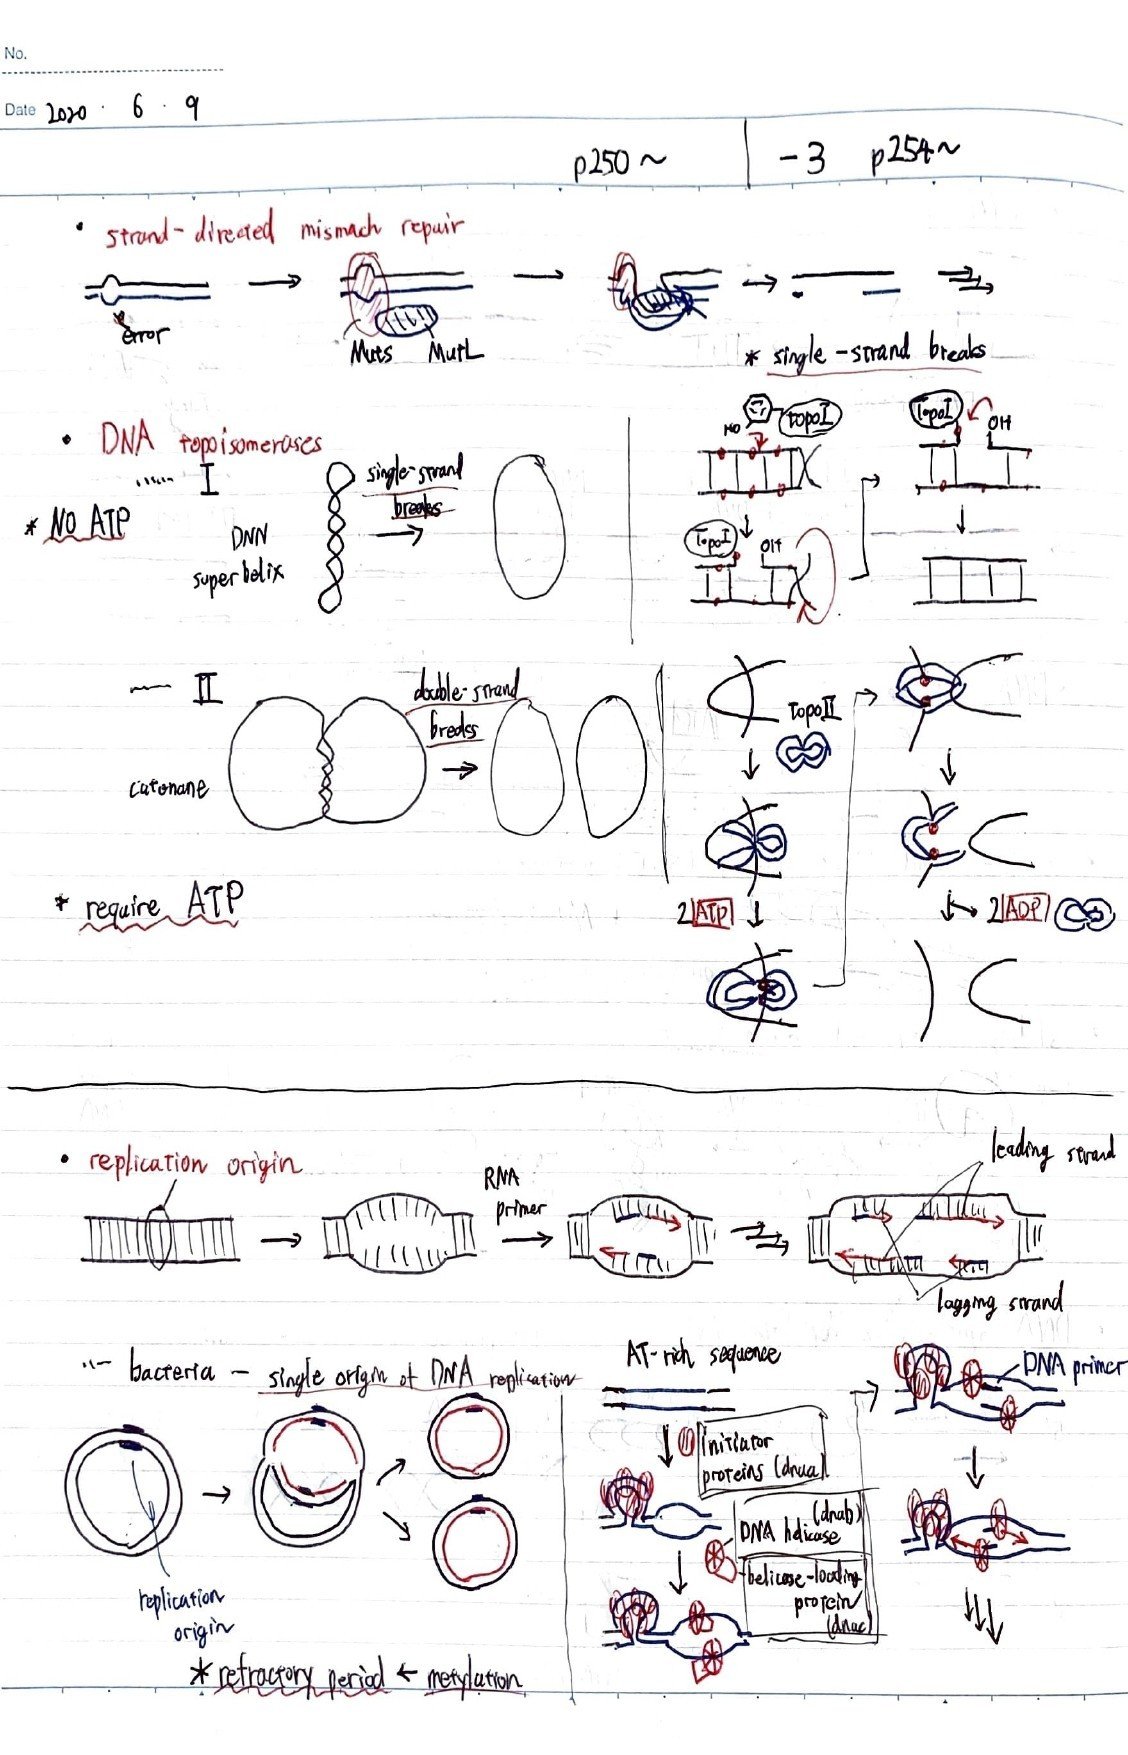 No.
Date 2020 . 6 . 9
p250 ~ -3 p254~
• strand-directed mismach repair
error
Muts MutL
* single-strand breaks
• DNA topoisomerases
I
* No ATP
DNN
superhelix
single-strand
breaks
HO
topoI
TopoI
OH
TopoI
OH
II
catenane
double-strand
breaks
* require ATP
topoII
2 ATP
2 ADP
• replication origin
RNA
primer
leading strand
lagging strand
bacteria - single origin of DNA replication
replication
origin
* refractory period ← metylation
AT-rich sequence
initiator
proteins (dnaa)
(dnab)
DNA helicase
helicase-loading
protein
(dnac)
DNA primer